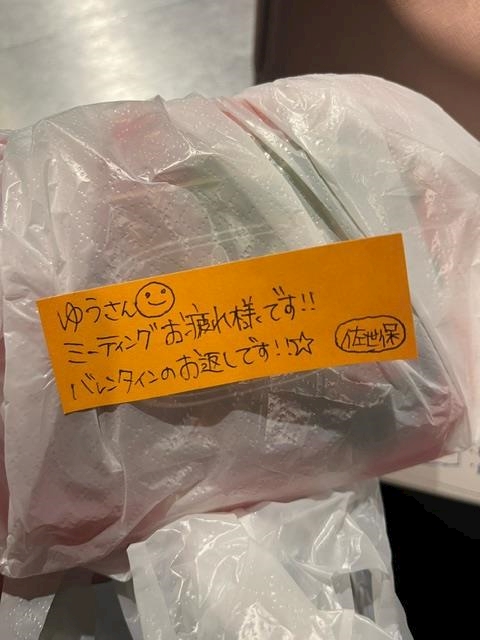 ゆうさん☺
ミーティングお疲れ様です!!
バレンタインのお返しです!!☆ 佐世保